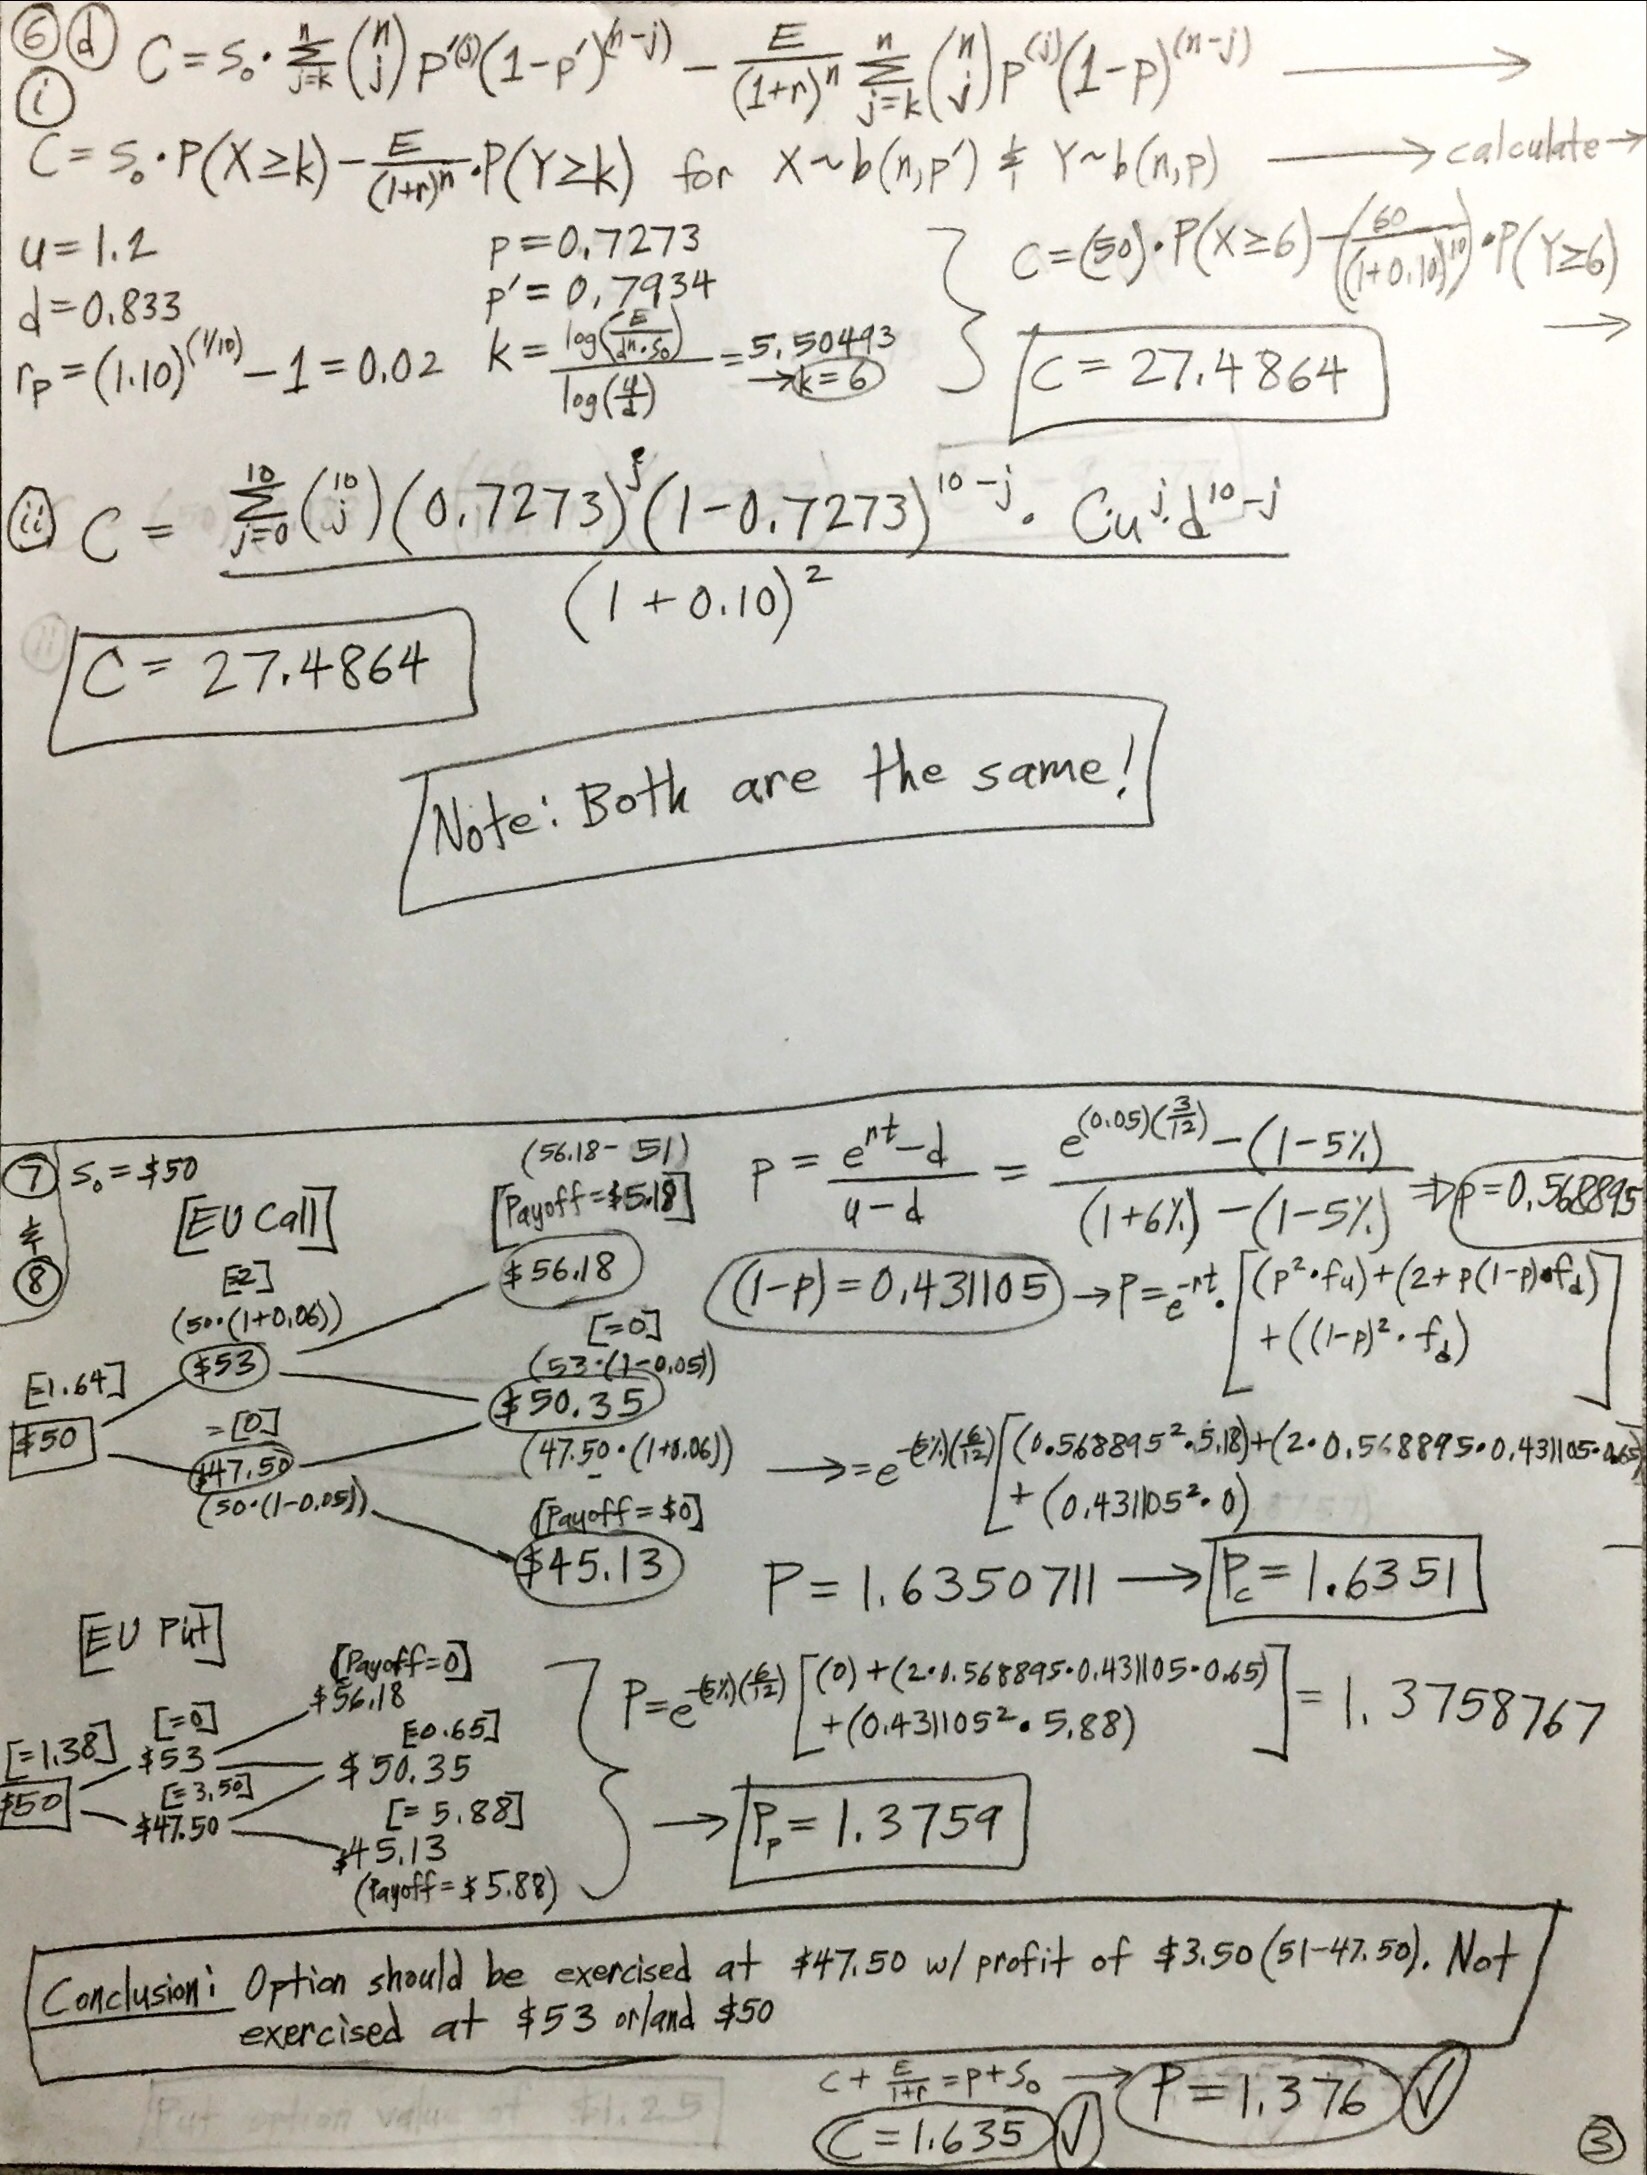 6 d C = S₀ · Σ_{j=k}^{n} (n j) p'^(j) (1-p')^(n-j) - E/(1+r)^n Σ_{j=k}^{n} (n j) p^(j) (1-p)^(n-j) →
i
C = S₀ · P(X≥k) - E/(1+r)^n · P(Y≥k) for X~b(n,p') & Y~b(n,p) → calculate →
u = 1.2
d = 0.833
r_p = (1.10)^(1/10) - 1 = 0.02
p = 0.7273
p' = 0.7934
k = log(E/(dⁿ·S₀)) / log(u/d) = 5.50493
→ k = 6
C = (50) · P(X≥6) - (60/(1+0.10)^10) · P(Y≥6)
→
C = 27.4864
ii C = Σ_{j=0}^{10} (10 j) (0.7273)^j (1-0.7273)^{10-j} · Cu^j·d^{10-j}
(1+0.10)²
ii
C = 27.4864
Note: Both are the same!
7 & 8
S₀ = $50
[EU Call]
(56.18 - 51)
[Payoff = $5.18]
$56.18
[=2]
(50·(1+0.06))
$53
[=0]
(53·(1-0.05))
$50.35
(47.50·(1+0.06))
[1.64]
$50
=[0]
$47.50
(50·(1-0.05))
[Payoff = $0]
$45.13
p = (e^{rt} - d)/(u - d) = (e^{(0.05)(3/12)} - (1-5%))/((1+6%) - (1-5%)) ⇒ p = 0.568895
(1-p) = 0.431105 → P = e^{-rt} · [(p²·fu) + (2+p(1-p)·f_d)
+ ((1-p)²·f_d)]
→ = e^{-(5%)(6/12)} [(0.568895²·5.18) + (2·0.568895·0.431105·0.65)
+ (0.431105²·0)
P = 1.6350711 → P_c = 1.6351
[EU Put]
[Payoff=0]
$56.18
[=0]
$53
[=1.38]
$50
[0.65]
$50.35
[=3.50]
$47.50
[=5.88]
$45.13
(Payoff = $5.88)
P = e^{-(5%)(6/12)} [(0) + (2·0.568895·0.431105·0.65)
+ (0.431105²·5.88)] = 1.3758767
→ P_p = 1.3759
Conclusion: Option should be exercised at $47.50 w/ profit of $3.50 (51-47.50). Not
exercised at $53 or/and $50
c + E/(1+r) = p + S₀ → P = 1.376 ✓
C = 1.635 ✓
Put option value of $1.25
3